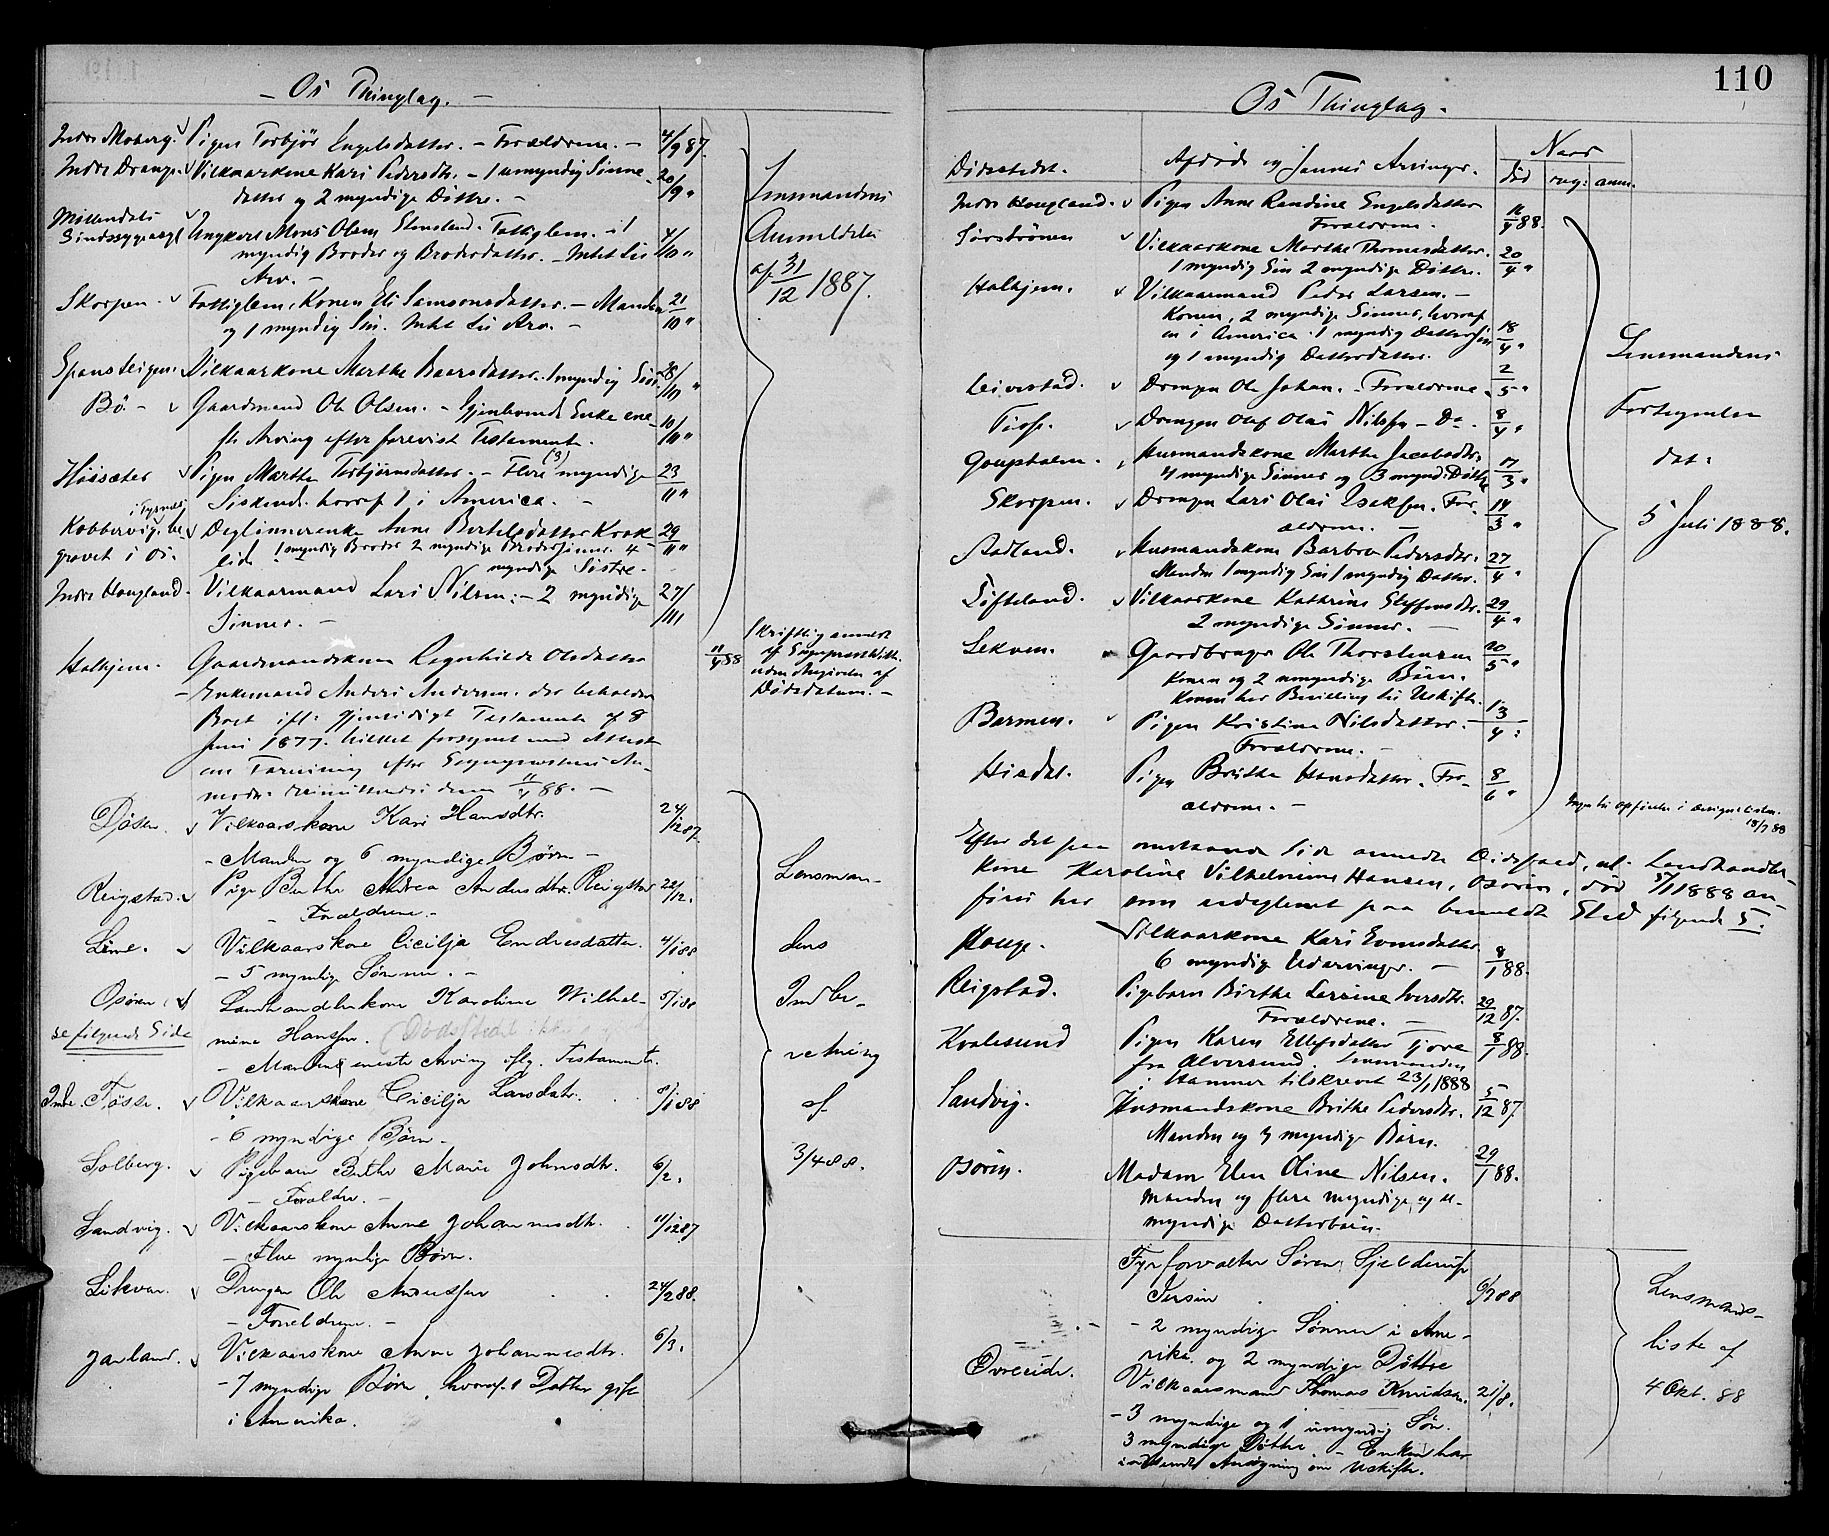 - Os Thinglag. -
Indre Moberg. Pigen Torbjør Engelsdatter. - Forældrene. - 4/9 87.
Indre Drange. Vilkaarkone Kari Pedersdtr. - 1 umyndig Sønne-
datter og 2 myndige Døttre. - 20/9 "
Sindssygeasyl Ungkarl Mons Olsen Stensland. Fattiglem. - 1
myndig Broder og Broderdatter. - Intet til 4/10 "
Arv. -
Skorpen. Fattiglem, Konen Eli Samsonsdatter. - Manden 21/10 "
og 1 myndig Søn. Intet til Arv. -
Vilkaarkone Marthe Baarsdatter. 1 myndig Søn. 8/10 "
Bø. - Gaardmand Ole Olsen. - Gjenlevende Enke ene-
ste Arving efter forevist Testamente. 10/10 "
Høisæter Pigen Marthe Torbjørnsdatter. - Flere (3) myndige 23/11 "
Siskend. hvoraf 1 i America. -
i Tysnes
Kobbervig. be- Enke Anne Bertelsdatter 29/11 "
gravet i Os. lid. 1 myndig Broder 2 myndige Brodersønner. 4
myndige Søstre.
Indre Hougland. Vilkaarmand Lars Nilsen. - 2 myndige 27/11
Sønner. -
Lensmandens
Anmeldelse
af 31/12 1887.
Halhjem. Gaardmandskone Ragnhilde Olsdatter 11/4 88
- Enkemand Anders Andersen. der beholder
Boet ifl. gjensidigt Testamente af 8
Juni 1877. hvilket forsynet med Attest
om Tæring efter
11/4 88. -
Skriftlig anmeldt
uden Angivelse af
Dødsdatum. -
Døsen. Vilkaarskone Kari Hansdtr. 24/12 87.
- Manden og 6 myndige Børn -
Reigstad. Pige Berthe Andrea Andersdtr. Reigstad 22/12.
- Forældrene. -
Vilkaarskone Cicilja Endresdatter. 4/1 88
- 5 myndige Sønner. -
Osøren Landhandlerkone Karoline Wilhel- 5/1 88
se følgende Side mine Hanssen.
- Manden eneste Arving iflg. Testamente.
Indre Tøsse. Vilkaarskone Cicilja Larsdatr. 8/1 88
- 6 myndige Børn -
Solberg. Pigebarn Berthe Marie Johnsdtr. 6/2.
- Forældre. -
Sandvig. Vilkaarskone Anne Johannesdtr. 11/12 87
- Flere myndige Børn.
Likvar. Drengen Ole Anderssen 24/2 88.
- Forældrene. -
Vilkaarskone Anne Johannesdtr. 6/3.
- 7 myndige Børn, hvoraf 1 Datter gift
i Amerika.
Lensman-
dens
Indbe-
retning
af
3/4 88.
110
Os Thinglag.
Dødsstedet. Afdøde og Sammes Arvinger. Naar
død reg. anm.
Indre Hougland. Pigen Anne Randine Engelsdatter
Forældrene. 14/4 88.
Sørstrønen Vilkaarkone Marthe Thomesdatter.
1 myndig Søn 2 myndige Døttre. 20/4 "
Halhjem. Vilkaarmand Peder Larsen. -
Konen, 2 myndige Sønner, hvoraf
en i America. 1 myndig Dattersøn 18/4 "
og 1 myndig Datterdatter.
Leivestad. Drengen Ole Johan. - Forældrene. 2/5 "
Tøsse. Drengen Olaf Olai Nilssen - Do. 8/4 "
Husmandskone Marthe Jacobsdtr.
4 myndige Sønner og 3 mynd. Døttre 17/3 "
Skorpen. Drengen Lars Olai Isaksen. For- 14/3 "
ældrene. -
Aadland. Husmandskone Barbro Pedersdtr. 27/4 "
Manden 1 myndig Søn 1 myndig Datter.
Søfteland. Vilkaarkone Kathrine Steffensdtr. 29/4 "
2 myndige Sønner. -
Lekven. Gaardbruger Ole Thorstensen 20/5 "
Konen og 2 umyndige Børn.
Konen har Bevilling til Uskifte.
Barmen. Pigen Kristine Nilsdatter. 13/4 "
Forældrene. -
Hisdal. Pigen Brithe Hansdatter. For- 8/6 "
ældrene. -
Lensmandens
Fortegnelse
dat.
5 Juli 1888.
18/7 88
Efter det paa omstaaende Side anmeldte Dødsfald, af Landhandler-
kone Karoline Vilhelmine Hansen, Osøren, død 5/1 1888 an-
føres her som udeglemt paa bemeldte Sted følgende 5.
Houge. Vilkaarkone Kari Evensdatter
6 myndige Udarvinger. - 8/1 88.
Reigstad. Pigebarn Birthe Larsine Iversdtr.
Forældrene. - 29/12 87.
Kvalesund Pigen Karen Ellefsdatter Tjore 8/1 88.
fra Alversund. Lensmanden
i Hammer tilskrevet 23/1 1888
Sandvig. Husmandskone Brithe Pedersdtr. 5/12 87.
Manden og 3 myndige Børn.
Osøren. Madam Elen Oline Nilsen. 29/1 88.
Manden og flere myndige og u-
myndige Datterbørn.
Fyrforvalter Søren Gjelderup
6/7 88
- 2 myndige Sønner i Ame-
rika. og 2 myndige Døttre
Øvreeide. Vilkaarsmand Thomas Knudsen. 21/8.
- 3 myndige og 1 umyndig Søn.
3 myndige Døttre. - Enken har
indsendt Ansøgning om Uskifte.
Lensmands-
liste af
4 Okt. 88